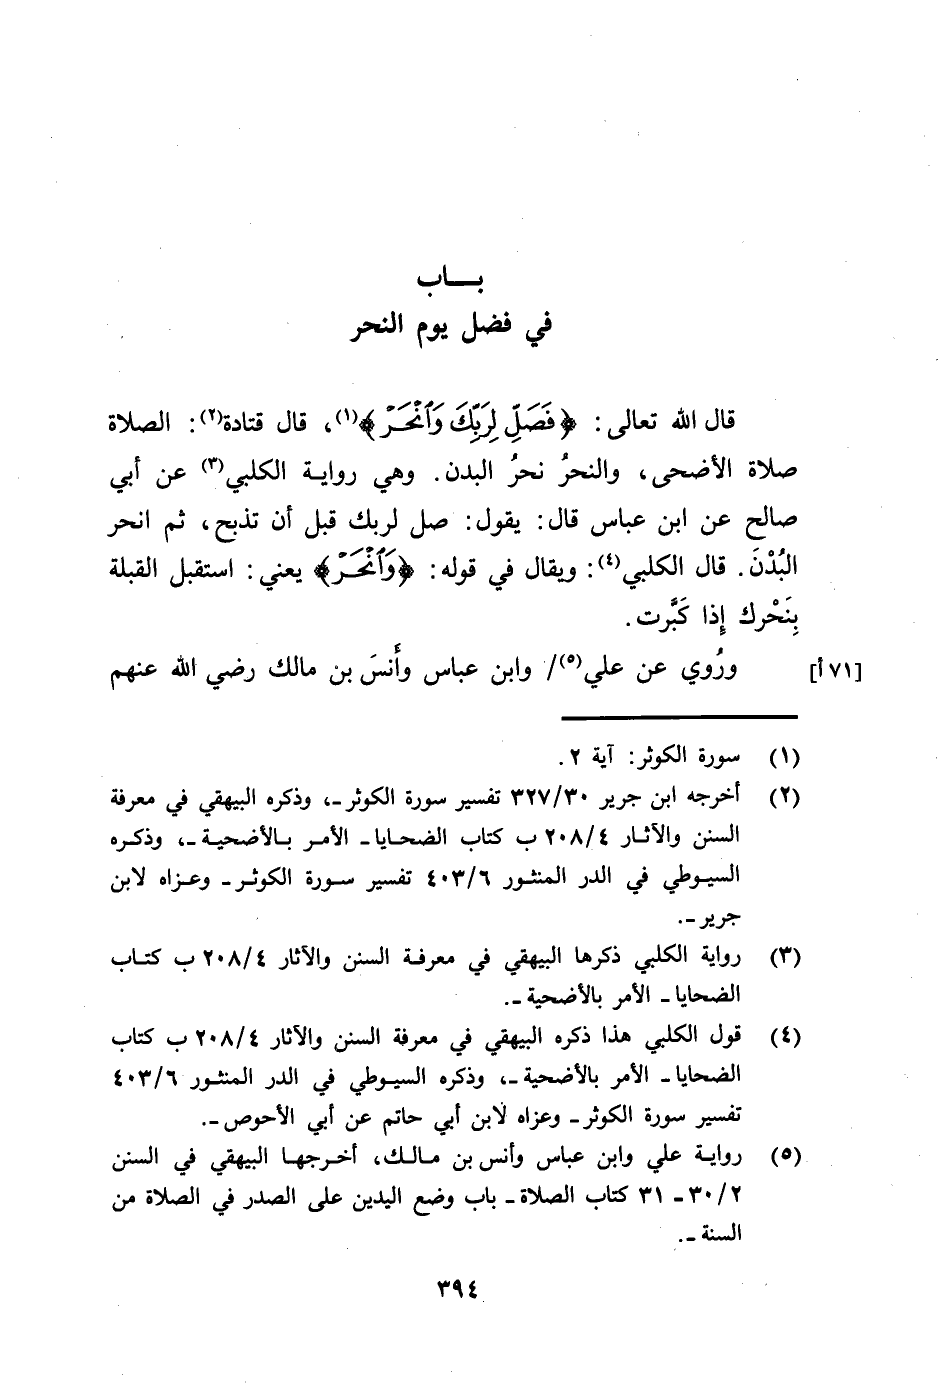 بـــاب
في فضل يوم النحر
قال الله تعالى: ﴿فَصَلِّ لِرَبِّكَ وَٱنْحَرْ﴾(١)، قال قتادة(٢): الصلاة
صلاة الأضحى، والنحرُ نحرُ البدن. وهي رواية الكلبي(٣) عن أبي
صالح عن ابن عباس قال: يقول: صل لربك قبل أن تذبح، ثم انحر
البُدْنَ. قال الكلبي(٤): ويقال في قوله: ﴿وَٱنْحَرْ﴾ يعني: استقبل القبلة
بِنَحْرك إِذا كَبَّرت.
[٧١أ] ورُوي عن علي(٥)/ وابن عباس وأَنسَ بن مالك رضي الله عنهم
(١) سورة الكوثر: آية ٢.
(٢) أخرجه ابن جرير ٣٢٧/٣٠ تفسير سورة الكوثر ـ، وذكره البيهقي في معرفة
السنن والآثـار ٢٠٨/٤ ب كتاب الضحـايا ـ الأمـر بـالأضحيـة ـ، وذكـره
السيـوطي في الدر المنثـور ٤٠٣/٦ تفسير سـورة الكوثـر ـ وعـزاه لابن
جرير ـ.
(٣) رواية الكلبي ذكرها البيهقي في معرفـة السنن والآثار ٢٠٨/٤ ب كتـاب
الضحايا ـ الأمر بالأضحية ـ.
(٤) قول الكلبي هذا ذكره البيهقي في معرفة السنن والآثار ٢٠٨/٤ ب كتاب
الضحايا ـ الأمر بالأضحية ـ، وذكره السيـوطي في الدر المنثـور ٤٠٣/٦
تفسير سورة الكوثر ـ وعزاه لابن أبي حاتم عن أبي الأحوص ـ.
(٥) روايـة علي وابن عباس وأنس بن مـالـك، أخـرجهـا البيهقي في السنن
٣٠/٢ ـ ٣١ كتاب الصلاة ـ باب وضع اليدين على الصدر في الصلاة من
السنة ـ.
٣٩٤